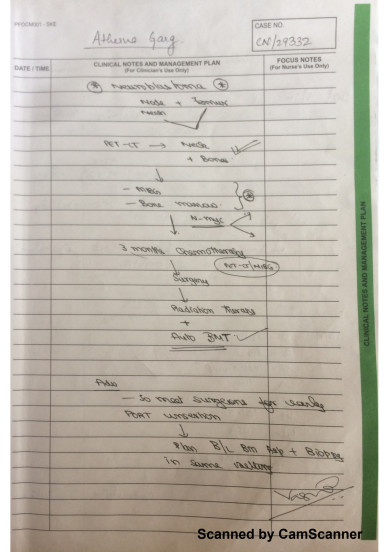 CASE NO.
Atharva Garg
CNC/29332
DATE / TIME
CLINICAL NOTES AND MANAGEMENT PLAN
(For Clinician's Use Only)
FOCUS NOTES
(For Nurse's Use Only)
Neuroblastoma
Node +
PET-CT → Node
+ Bones
↓
- MIBG
- Bone marrow
↓ N-myc
3 months Chemotherapy
↓ PET-CT/MIBG
Surgery
↓
Radiation therapy
+
Auto BMT
Adv
- To meet surgeons for early
PORT insertion
↓
Plan B/L BM Asp + Biopsy
in same setting
CLINICAL NOTES AND MANAGEMENT PLAN
Scanned by CamScanner